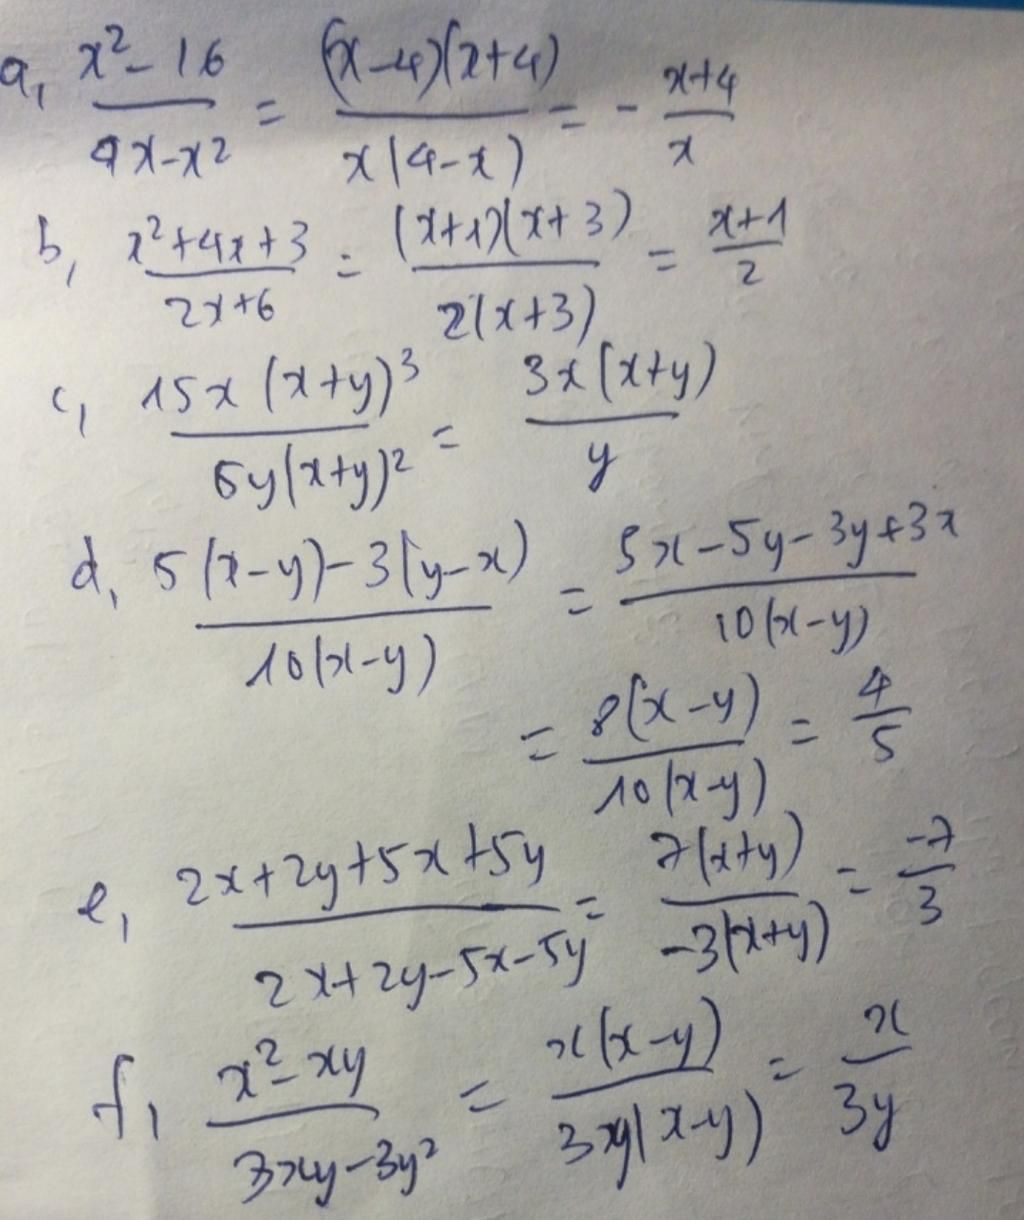 a, x² - 16 / 4x - x² = (x-4)(x+4) / x(4-x) = - x+4 / x
b, x² + 4x + 3 / 2x + 6 = (x+1)(x+3) / 2(x+3) = x+1 / 2
c, 15x (x+y)³ / 5y(x+y)² = 3x(x+y) / y
d, 5(x-y) - 3(y-x) / 10(x-y) = 5x - 5y - 3y + 3x / 10(x-y)
= 8(x-y) / 10(x-y) = 4 / 5
e, 2x + 2y + 5x + 5y / 2x + 2y - 5x - 5y = 7(x+y) / -3(x+y) = -7 / 3
f, x² - xy / 3xy - 3y² = x(x-y) / 3y(x-y) = x / 3y